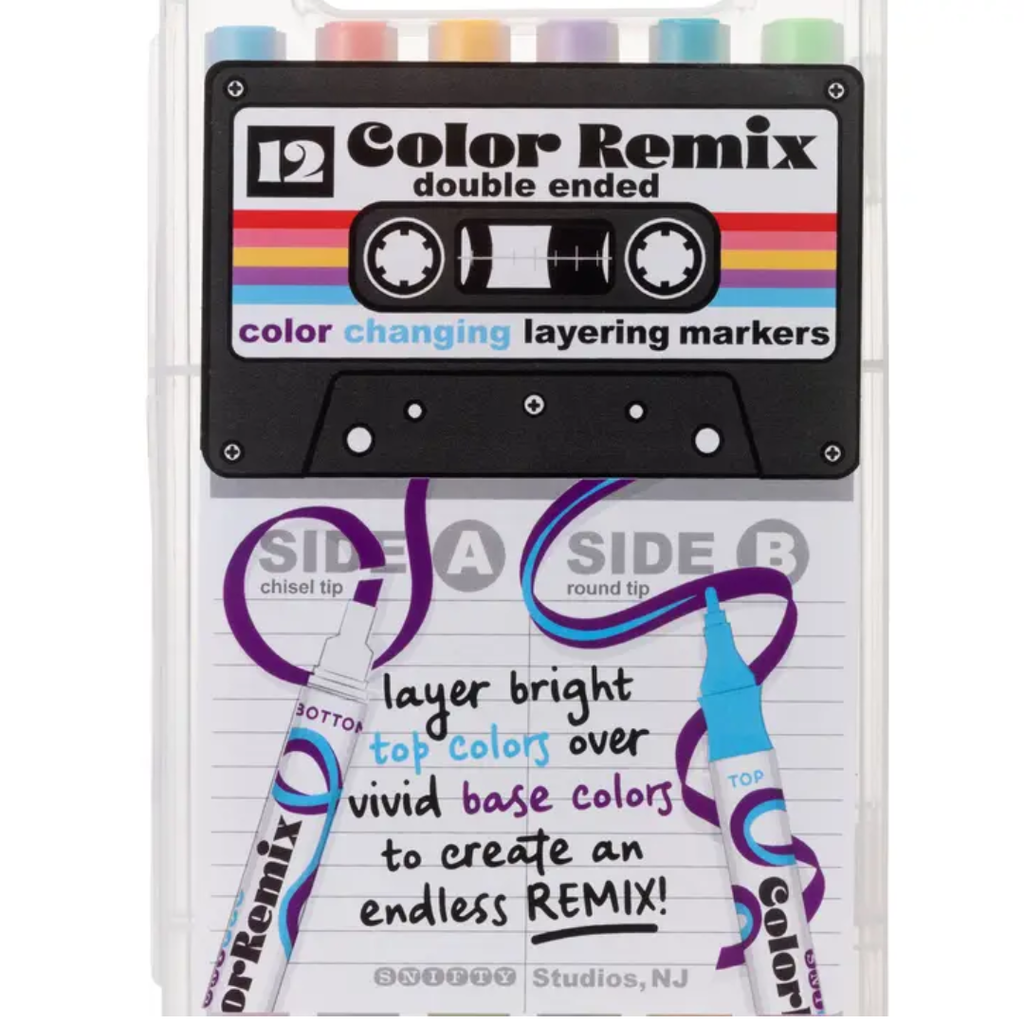 12 Color Remix
double ended
color changing layering markers
SIDE A SIDE B
chisel tip round tip
layer bright
top colors over
vivid base colors
to create an
endless REMIX!
BOTTOM
TOP
SNIFTY Studios, NJ